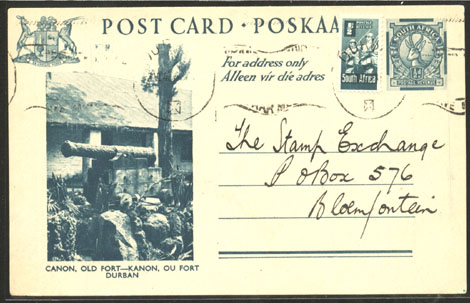 POST CARD · POSKAA
For address only
Alleen vir die adres
South Africa
SOUTH AFRICA
The Stamp Exchange
P O Box 576
Bloemfontein
CANON, OLD FORT—KANON, OU FORT
DURBAN